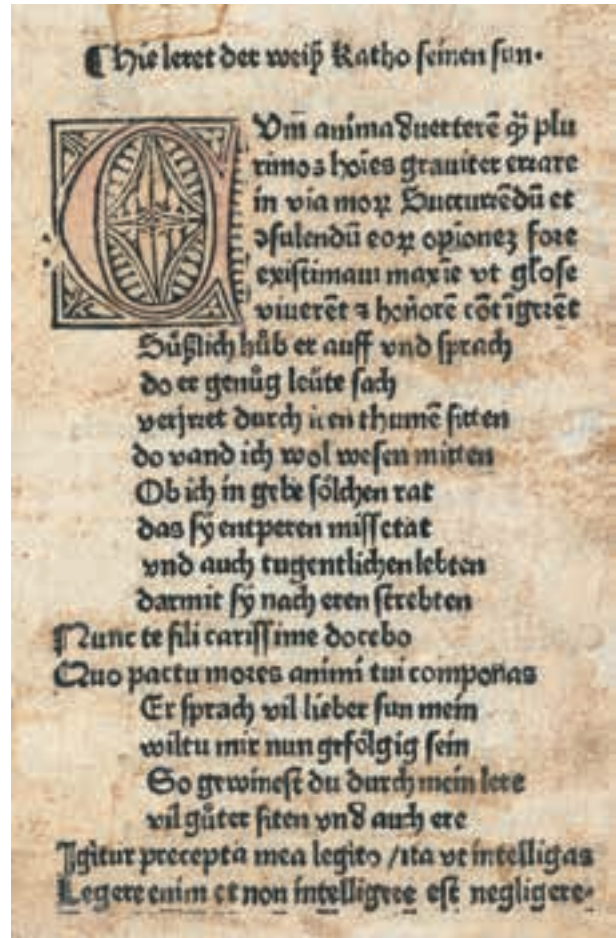 ¶ Hie leret der weiß Katho seinen sun.
CUm̄ anima aduerterē qͥ plu
rimoꝫ hoīes grauiter errare
in via moꝝ Succurrēdū et
ꝯsulendū eoꝝ opionez fore
existimaui maxīe vt glọse
viuerēt ⁊ honorē cōtīgerēt
Suͤßlich huͦb er auff vnd sprach
do er genuͦg leuͤte sach
verjrret durch iren thumē sitten
do vand ich wol wesen mitten
Ob ich in gebe soͤlchen rat
das sy entperen missetat
vnd auch tugentlichen lebten
darmit sy nach eren strebten
Nunc te fili carissime docebo
Quo pactu mores animi tui componas
Er sprach vil lieber sun mein
wiltu mir nun gefoͤlgig sein
So gewinest du durch mein lere
vil guͦter siten vnd auch ere
Igitur precepta mea legito /ita vt intelligas
Legere enim et non intelligere est negligere.